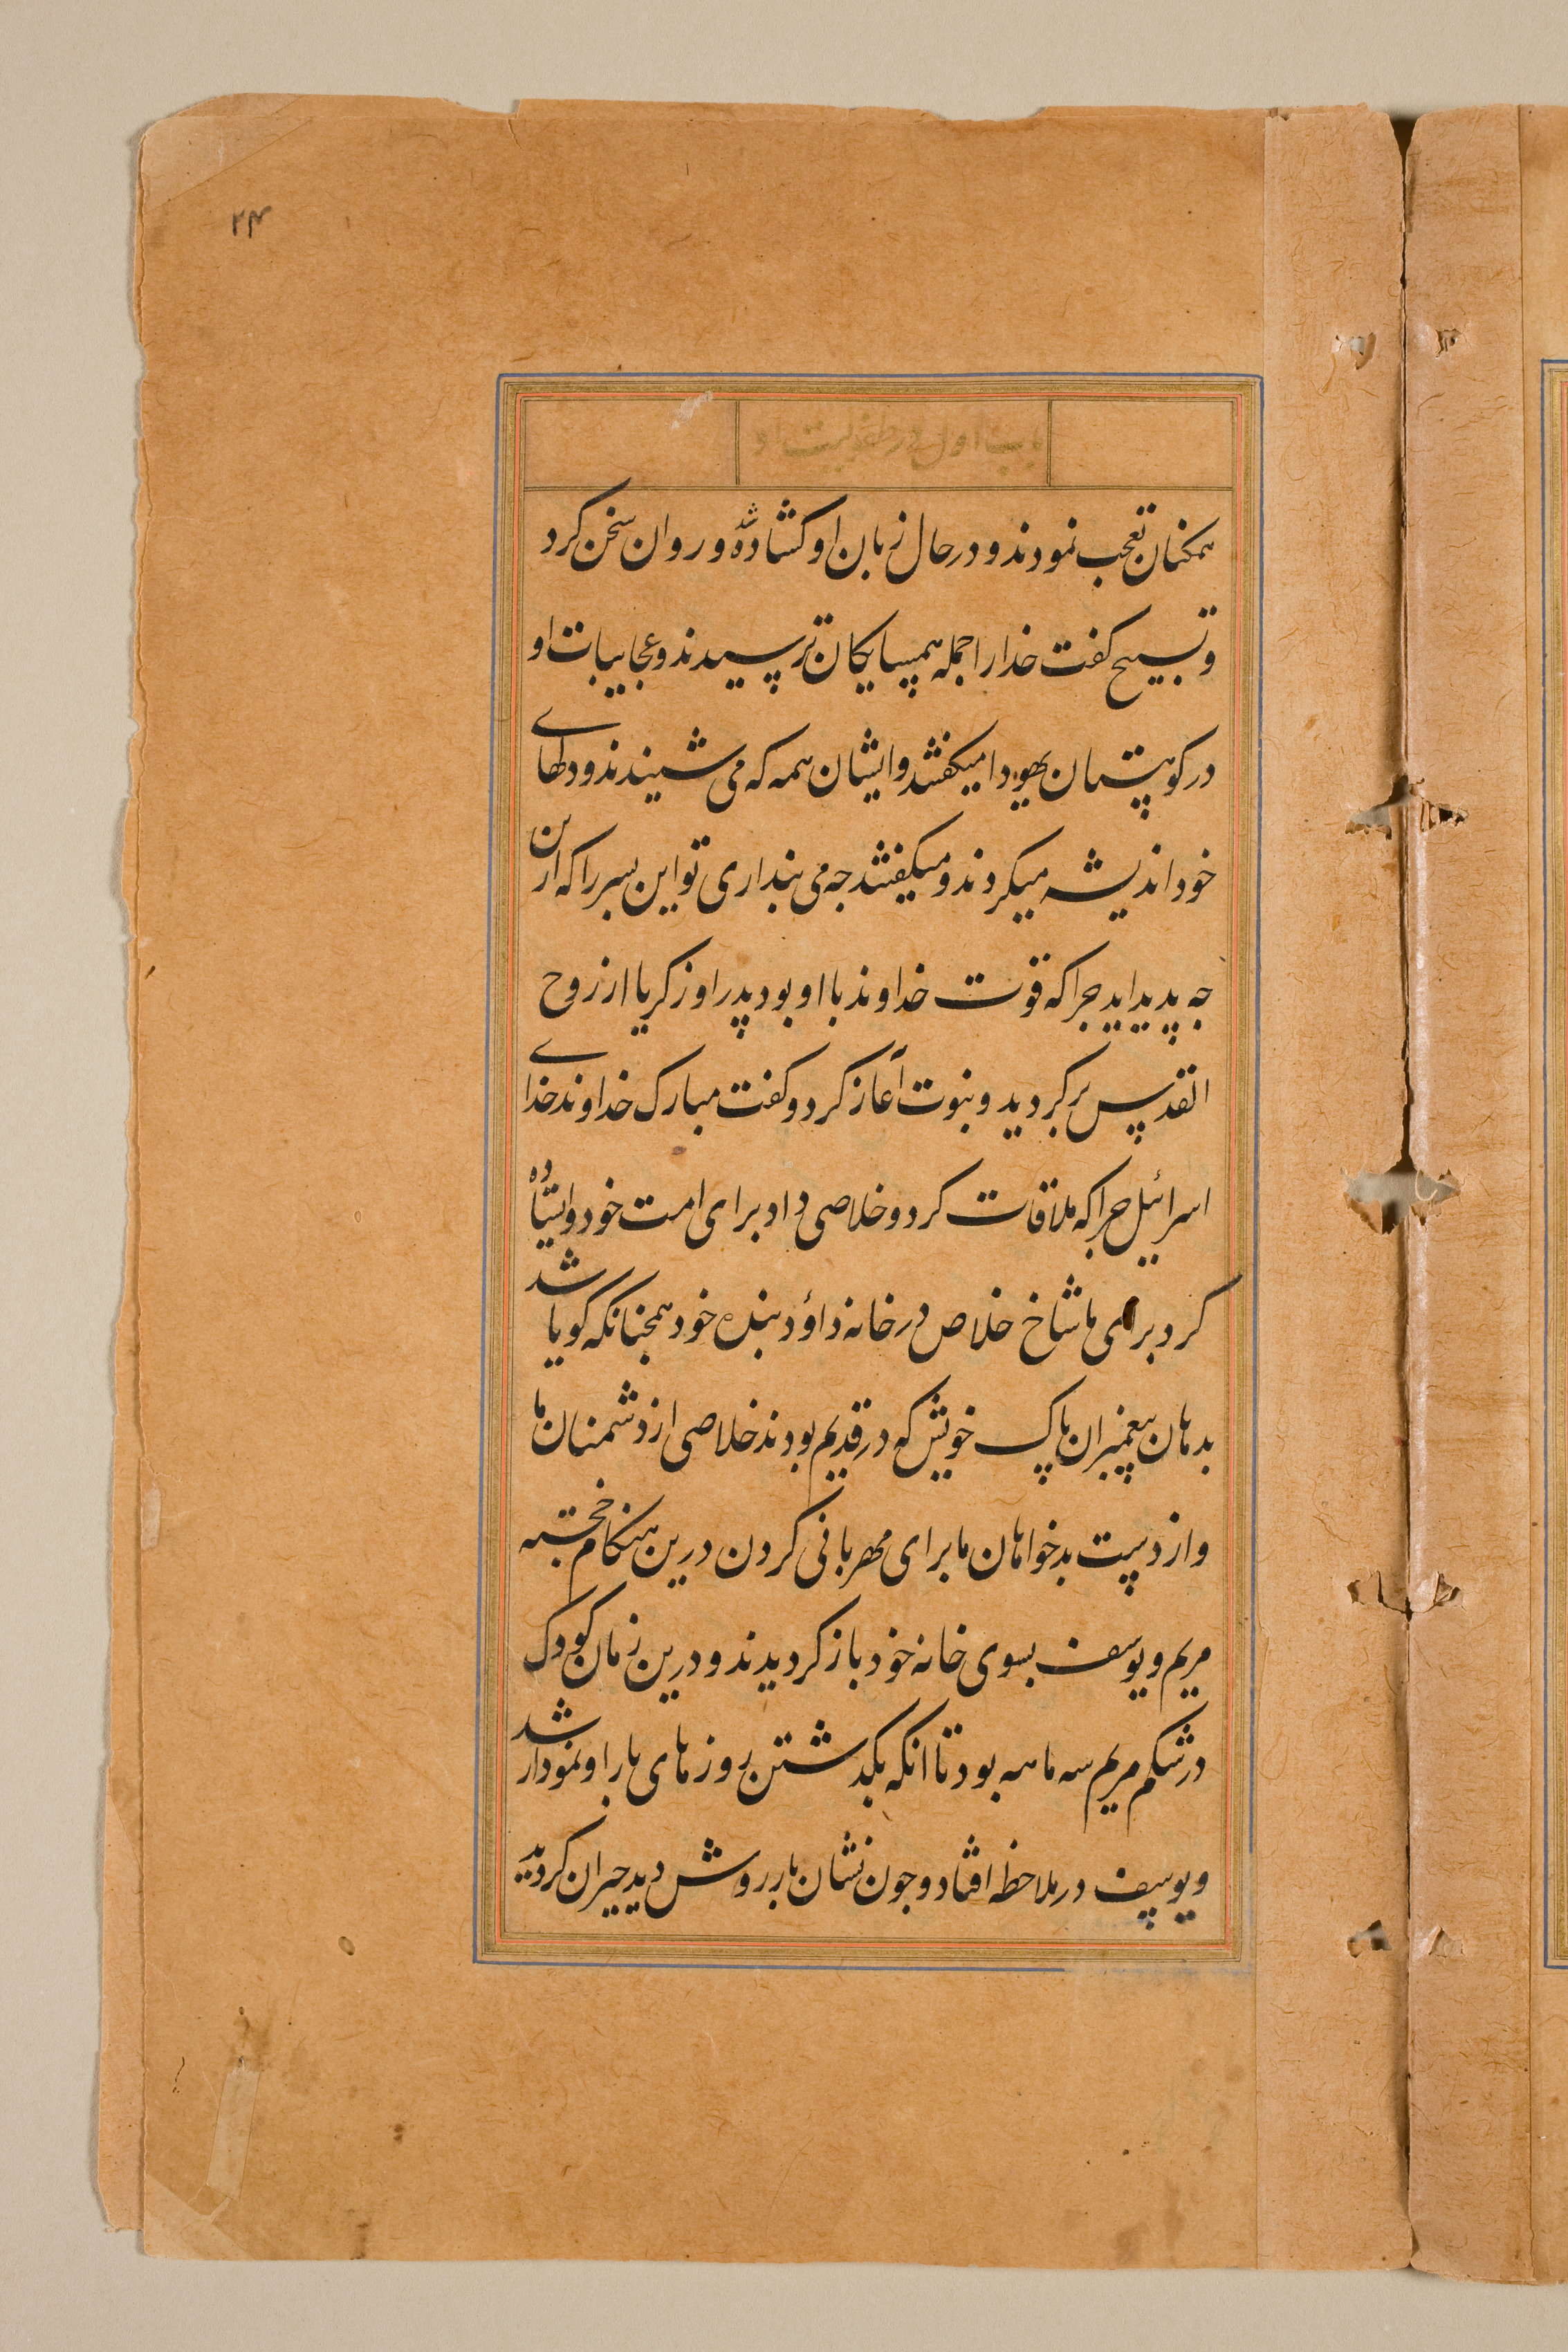 ۲۴
باب اول در طفولیت او
همکنان تعجب نمودند و در حال زبان او کشاده شد و روان سخن کرد
و تسبیح کفت خدا را جمله همسایکان ترسیدند و عجایبات او
در کوهستان یهودا میکفتند و ایشان همه که می شنیدند و دلهای
خود اندیشه میکردند و میکفتند جه می بنداری تو این بسر را که ازین
جه پدید اید جرا که قوت خداوند با او بود پدر او زکریا از روح
القدس بر کردید و نبوت آغاز کرد و کفت مبارک خداوند خدای
اسرائیل جرا که ملاقات کرد و خلاصی داد برای امت خود و ایستاده
کرد برای ما شاخ خلاص در خانه داؤد بنده خود همجنانکه کویا شد
بدهان پیغمبران پاک خویش که در قدیم بودند خلاصی از دشمنان ما
و از دست بدخواهان ما برای مهربانی کردن درین هنکام خجسته
مریم و یوسف بسوی خانه خود باز کردیدند و درین زمان کودک
در شکم مریم سه ماهه بود تا انکه بکدشتن روزهای بار او نمودار شد
و یوسف در ملاحظه افتاد و جون نشان بار روش دید حیران کردید